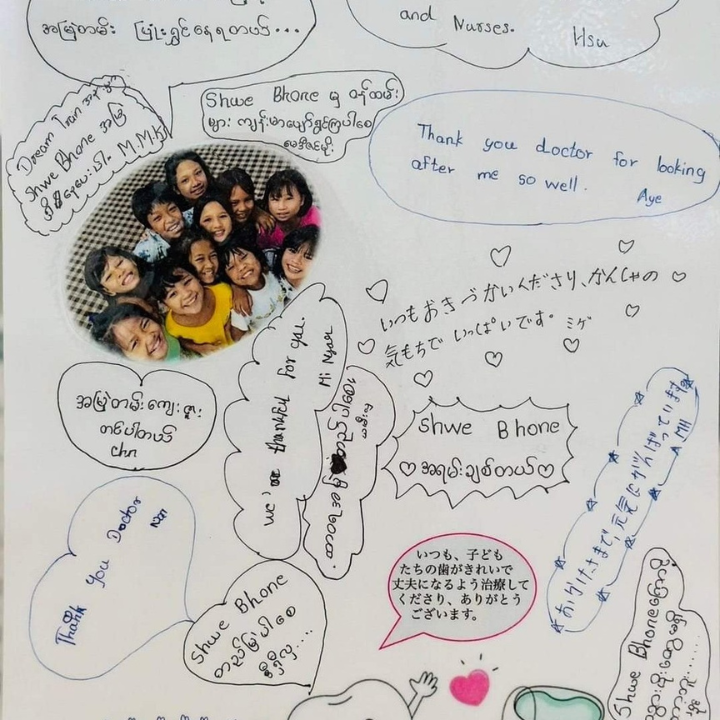 အမြဲတမ်း ပြုံးရွှင်နေရတယ်...
and Nurses.
Hsu
Dream Train
Shwe Bhone အမြဲ
M.M.K
Shwe Bhone မှ ဝန်ထမ်း
များ ကျန်းမာပျော်ရွှင်ကြပါစေ
Thank you doctor for looking
after me so well.
Aye
いつもおきづかいくださり、かんしゃの
気もちで いっぱいです。 ミゲ
အမြဲတမ်းကျေးဇူး
တင်ပါတယ်
chn
we, thank for you.
Mi Nyar
Shwe Bhone
အရမ်းချစ်တယ်
おかげさまで、元気にがんばっています
MIII
Thank you Doctor
Shwe Bhone
တည်မြဲပါစေ
いつも、子ども
たちの歯がきれいで
丈夫になるよう治療して
くださり、ありがとう
ございます。
Shwe Bhone